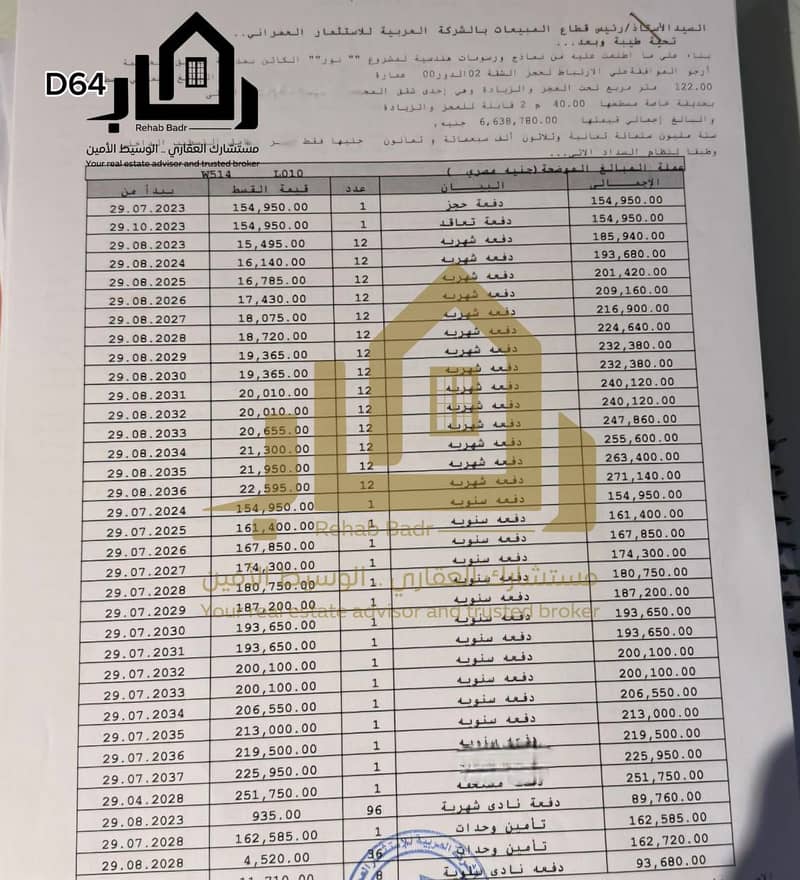 السيد الأستاذ/رئيس قطاع المبيعات بالشركة العربية للاستثمار العمراني..
تحية طيبة وبعد...
D64
بناء على ما اطلعت عليه من نماذج ورسومات هندسية لمشروع "" نور"" الكائن
أرجو الموافقة على الارتباط لحجز الشقة 02 الدور 00 عمارة
122.00 متر مربع تحت العجز والزيادة وهى إحدى شقق
بحديقة خاصة مسطحها 40.00 م 2 قابلة للعجز والزيادة
والبالغ إجمالي قيمتها 6,638,780.00 جنيه,
ستة مليون ستمائة ثمانية وثلاثون ألف سبعمائة و ثمانون جنيها فقط
وطبقا لنظام السداد الآتي...
رحاب بدر
Rehab Badr
مستشارك العقاري .. الوسيط الأمين
Your real estate advisor and trusted broker
عملة المبالغ الموضحة (جنيه مصري ) L010 W514
الإجمالى البيـــان عدد قيمة القسط يبدأ من
154,950.00 دفعة حجز 1 154,950.00 29.07.2023
154,950.00 دفعة تعاقد 1 154,950.00 29.10.2023
185,940.00 دفعه شهريه 12 15,495.00 29.08.2023
193,680.00 دفعه شهريه 12 16,140.00 29.08.2024
201,420.00 دفعه شهريه 12 16,785.00 29.08.2025
209,160.00 دفعه شهريه 12 17,430.00 29.08.2026
216,900.00 دفعه شهريه 12 18,075.00 29.08.2027
224,640.00 دفعه شهريه 12 18,720.00 29.08.2028
232,380.00 دفعه شهريه 12 19,365.00 29.08.2029
232,380.00 دفعه شهريه 12 19,365.00 29.08.2030
240,120.00 دفعه شهريه 12 20,010.00 29.08.2031
240,120.00 دفعه شهريه 12 20,010.00 29.08.2032
247,860.00 دفعه شهريه 12 20,655.00 29.08.2033
255,600.00 دفعه شهريه 12 21,300.00 29.08.2034
263,400.00 دفعه شهريه 12 21,950.00 29.08.2035
271,140.00 دفعه شهريه 12 22,595.00 29.08.2036
154,950.00 دفعه سنويه 1 154,950.00 29.07.2024
161,400.00 دفعه سنويه 1 161,400.00 29.07.2025
167,850.00 دفعه سنويه 1 167,850.00 29.07.2026
174,300.00 دفعه سنويه 1 174,300.00 29.07.2027
180,750.00 دفعه سنويه 1 180,750.00 29.07.2028
187,200.00 دفعه سنويه 1 187,200.00 29.07.2029
193,650.00 دفعه سنويه 1 193,650.00 29.07.2030
193,650.00 دفعه سنويه 1 193,650.00 29.07.2031
200,100.00 دفعه سنويه 1 200,100.00 29.07.2032
200,100.00 دفعه سنويه 1 200,100.00 29.07.2033
206,550.00 دفعه سنويه 1 206,550.00 29.07.2034
213,000.00 دفعه سنويه 1 213,000.00 29.07.2035
219,500.00 دفعه سنويه 1 219,500.00 29.07.2036
225,950.00 1 225,950.00 29.07.2037
251,750.00 1 251,750.00 29.04.2028
89,760.00 دفعة نادى شهرية 96 935.00 29.08.2023
162,585.00 تأمين وحدات 1 162,585.00 29.07.2028
162,720.00 تأمين وحدات 36 4,520.00 29.08.2028
93,680.00 دفعه نادي سنوية 8 11,710.00
رحاب بدر
Rehab Badr
مستشارك العقاري .. الوسيط الأمين
Your real estate advisor and trusted broker